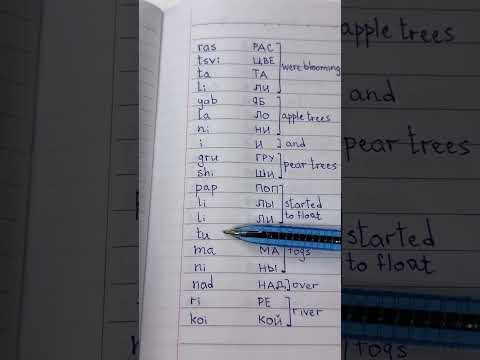 ras РАС
tsvi ЦВЕ were blooming
ta ТА
li ЛИ
yab ЯБ
la ЛО apple trees
ni НИ
i И and
gru ГРУ pear trees
shi ШИ
pap ПОП
li ЛЫ started
li ЛИ to float
tu
ma МА fogs
ni НЫ
nad НАД over
ri РЕ river
koi КОЙ
apple trees
and
pear trees
started
to float
fogs